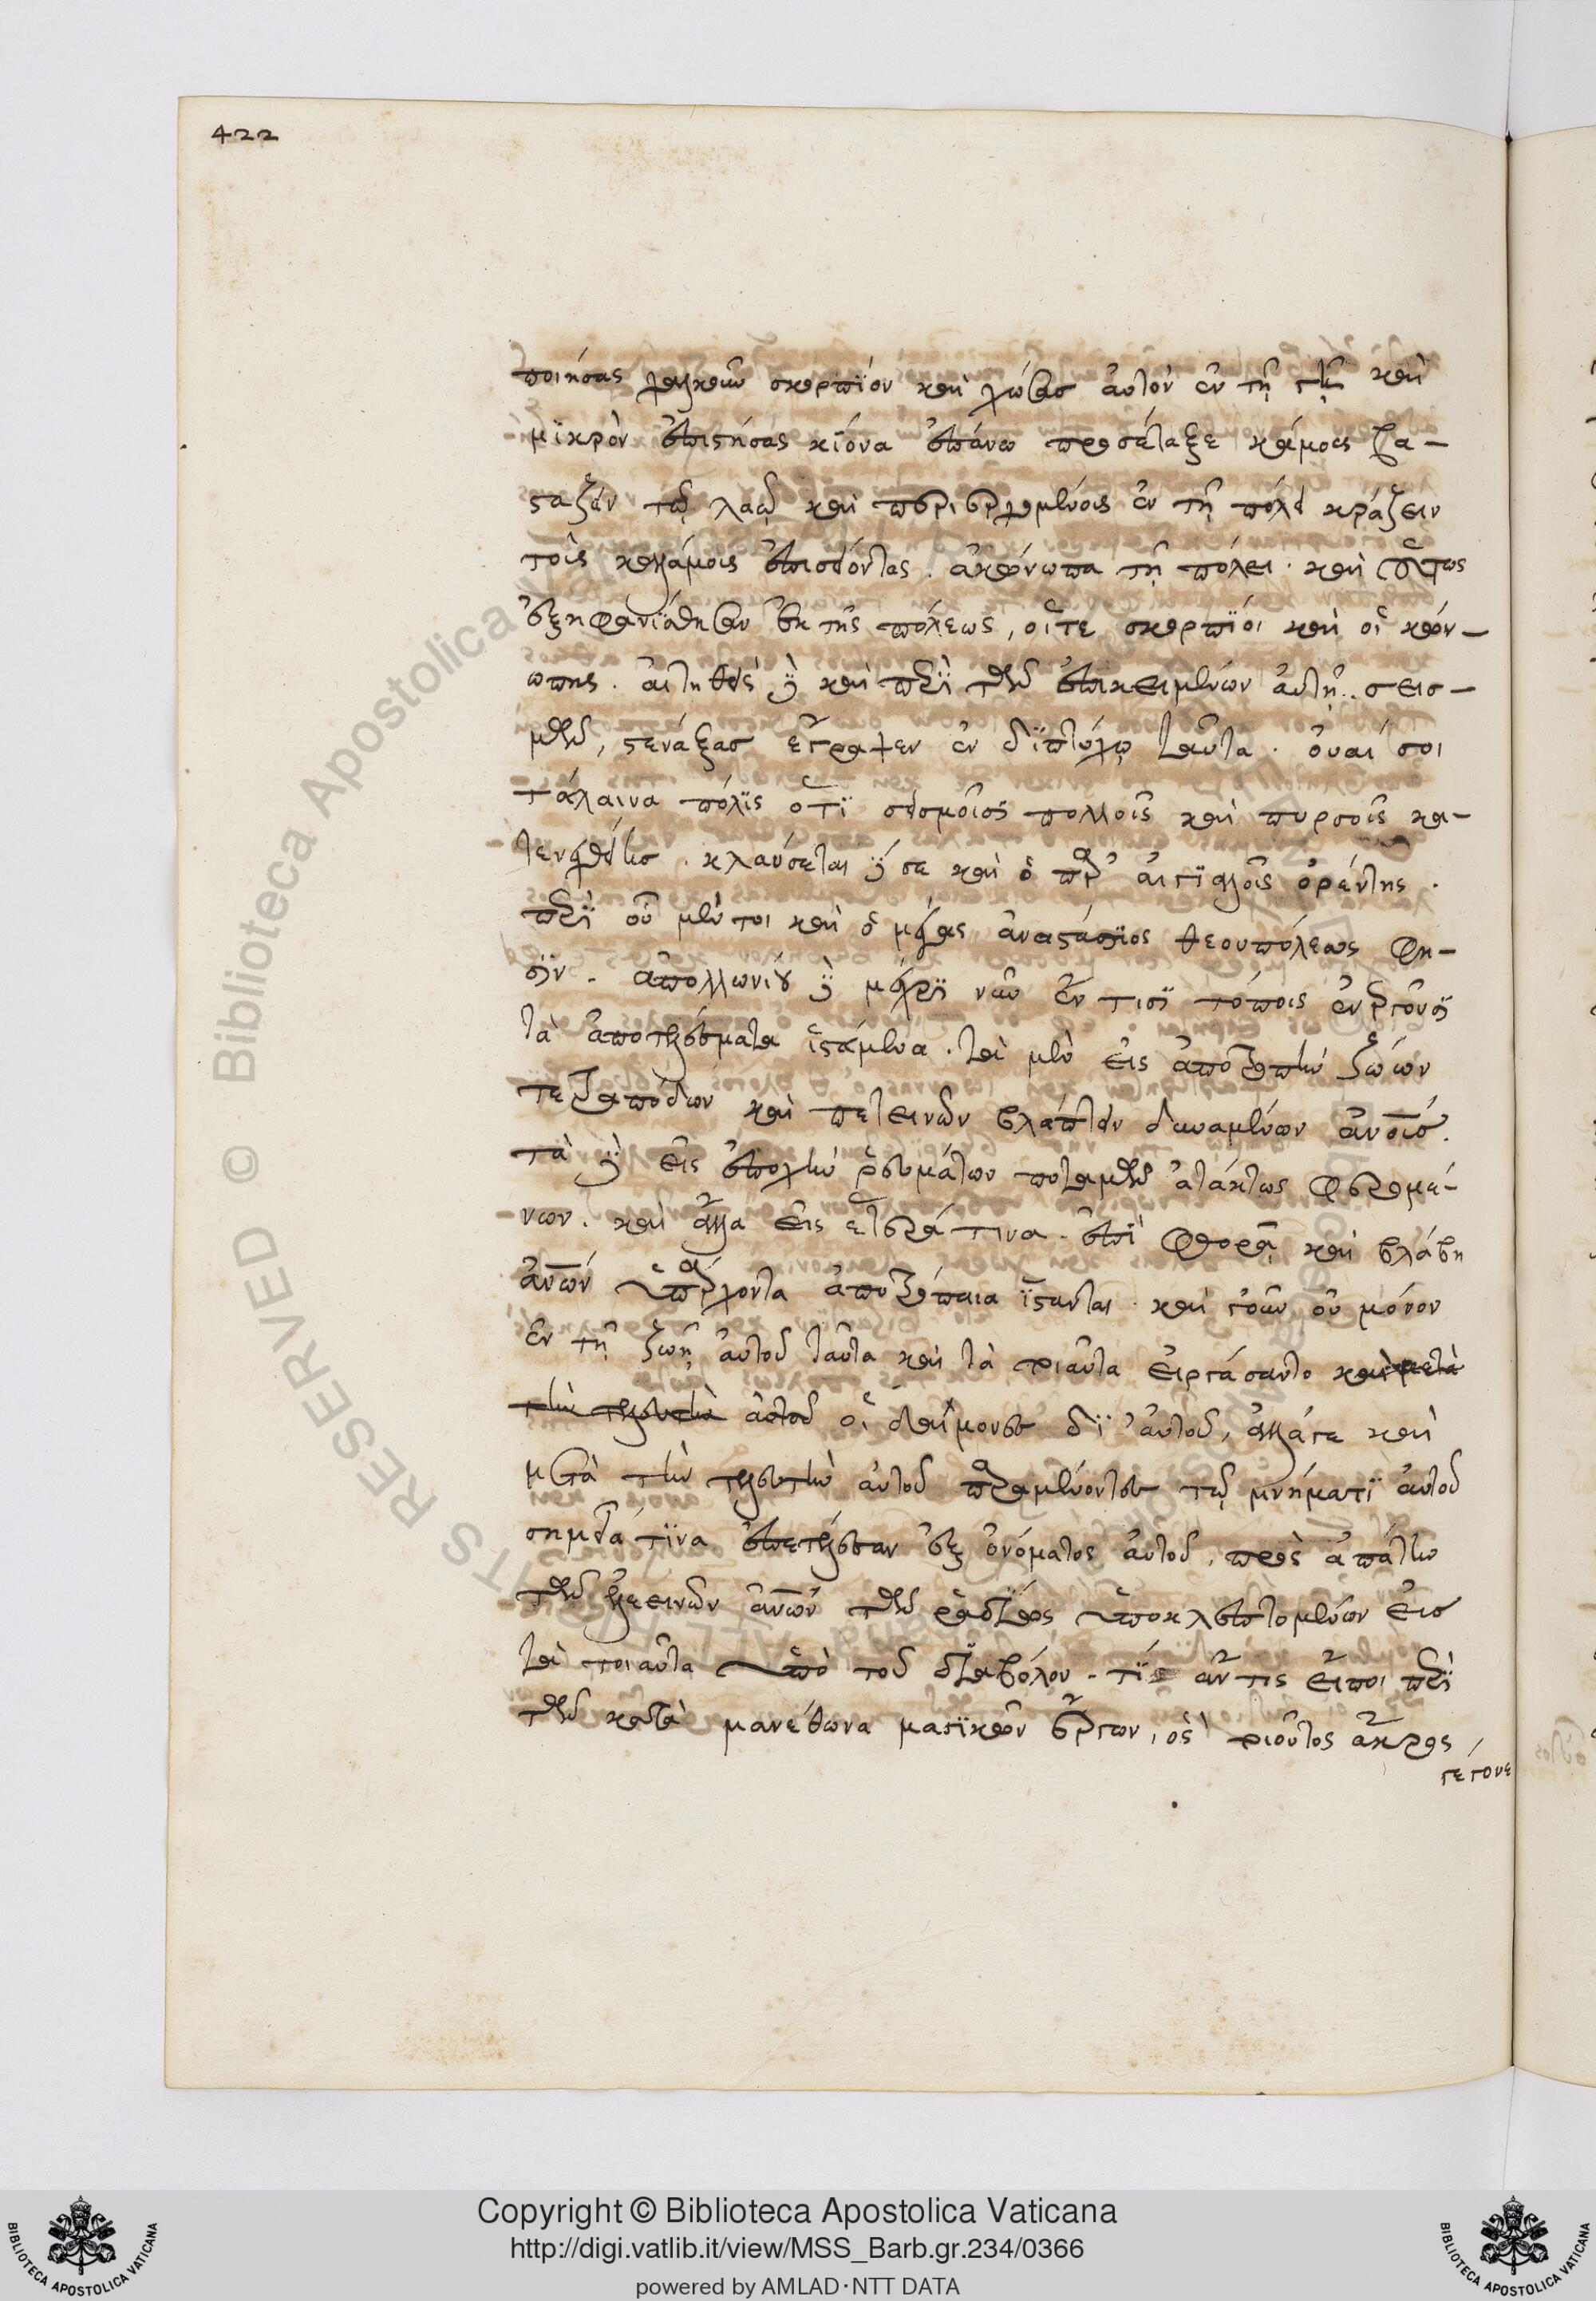 422
ποιήσας χαλκοῦν σκορπίον καὶ χώσας αὐτὸν ἐν τῇ γῇ καὶ
μικρὸν ἐπιστήσας κίονα ἐπάνω προσέταξε καλάμοις βα-
στάζειν τῷ λαῷ καὶ περιερχομένοις ἐν τῇ πόλει κράζειν
τοῖς καλάμοις ἐπισείοντας. ἀκώνωπα τῇ πόλει. καὶ οὕτως
ἐξηφανίσθησαν ἐκ τῆς πόλεως, οἵ τε σκορπίοι καὶ οἱ κών-
ωπης. αἰτηθεὶς δὲ καὶ περὶ τῶν ἐπικειμένων αὐτῇ. σεισ-
μῶν, στενάξας ἔγραψεν ἐν διπτύχῳ ταῦτα. οὐαί σοι
τάλαινα πόλις ὅτι σεισμοῖσι πολλοῖς καὶ πυρσοῖς κα-
τενεχθείης. κλαύσεται δέ σε καὶ ὁ παρ' αἰγιαλοῖς ὀρέντης.
περὶ οὗ μέντοι καὶ ὁ μέγας ἀναστάσιος θεουπόλεως φη-
σίν. ἀπολλωνίου δὲ μέχρι νῦν ἔν τισι τόποις ἐνεργοῦσι
τὰ ἀποτελέσματα ἱστάμενα. τὰ μὲν εἰς ἀποτροπὴν ζώων
τετραπόδων καὶ πετεινῶν βλάπτειν δυναμένων ἀνοις.
τὰ δὲ εἰς ἐποχὴν ῥευμάτων ποταμῶν ἀτάκτως φερομέ-
νων. καὶ ἄλλα εἰς ἕτερά τινα. ἐπὶ φθορᾷ καὶ βλάβῃ
ἀνων ὑπάρχοντα ἀποτρόπαια ἵστανται. καὶ γοῦν οὐ μόνον
ἐν τῇ ζωῇ αὐτοῦ ταῦτα καὶ τὰ τοιαῦτα εἰργάσαντο καὶ μετὰ
τὴν τελευτὴν αὐτοῦ οἱ δαίμονες δι' αὐτοῦ, ἀλλάγε καὶ
μετὰ τὴν τελευτὴν αὐτοῦ παραμένοντες τῷ μνήματι αὐτοῦ
σημεῖά τινα ἐπετέλεσαν ἐξ ὀνόματος αὐτοῦ, πρὸς ἀπάτην
τῶν ἐλεεινῶν ἀνων τῶν ῥαδίως ὑποκλεπτομένων εἰς
τὰ τοιαῦτα ὑπὸ τοῦ διαβόλου. τί ἄν τις εἴποι περὶ
τῶν κατὰ μανέθωνα μαγικῶν ἔργων, ὃς τοιοῦτος ἄκρος
γέγονε
Copyright © Biblioteca Apostolica Vaticana
http://digi.vatlib.it/view/MSS_Barb.gr.234/0366
powered by AMLAD·NTT DATA
BIBLIOTECA APOSTOLICA VATICANA
BIBLIOTECA APOSTOLICA VATICANA